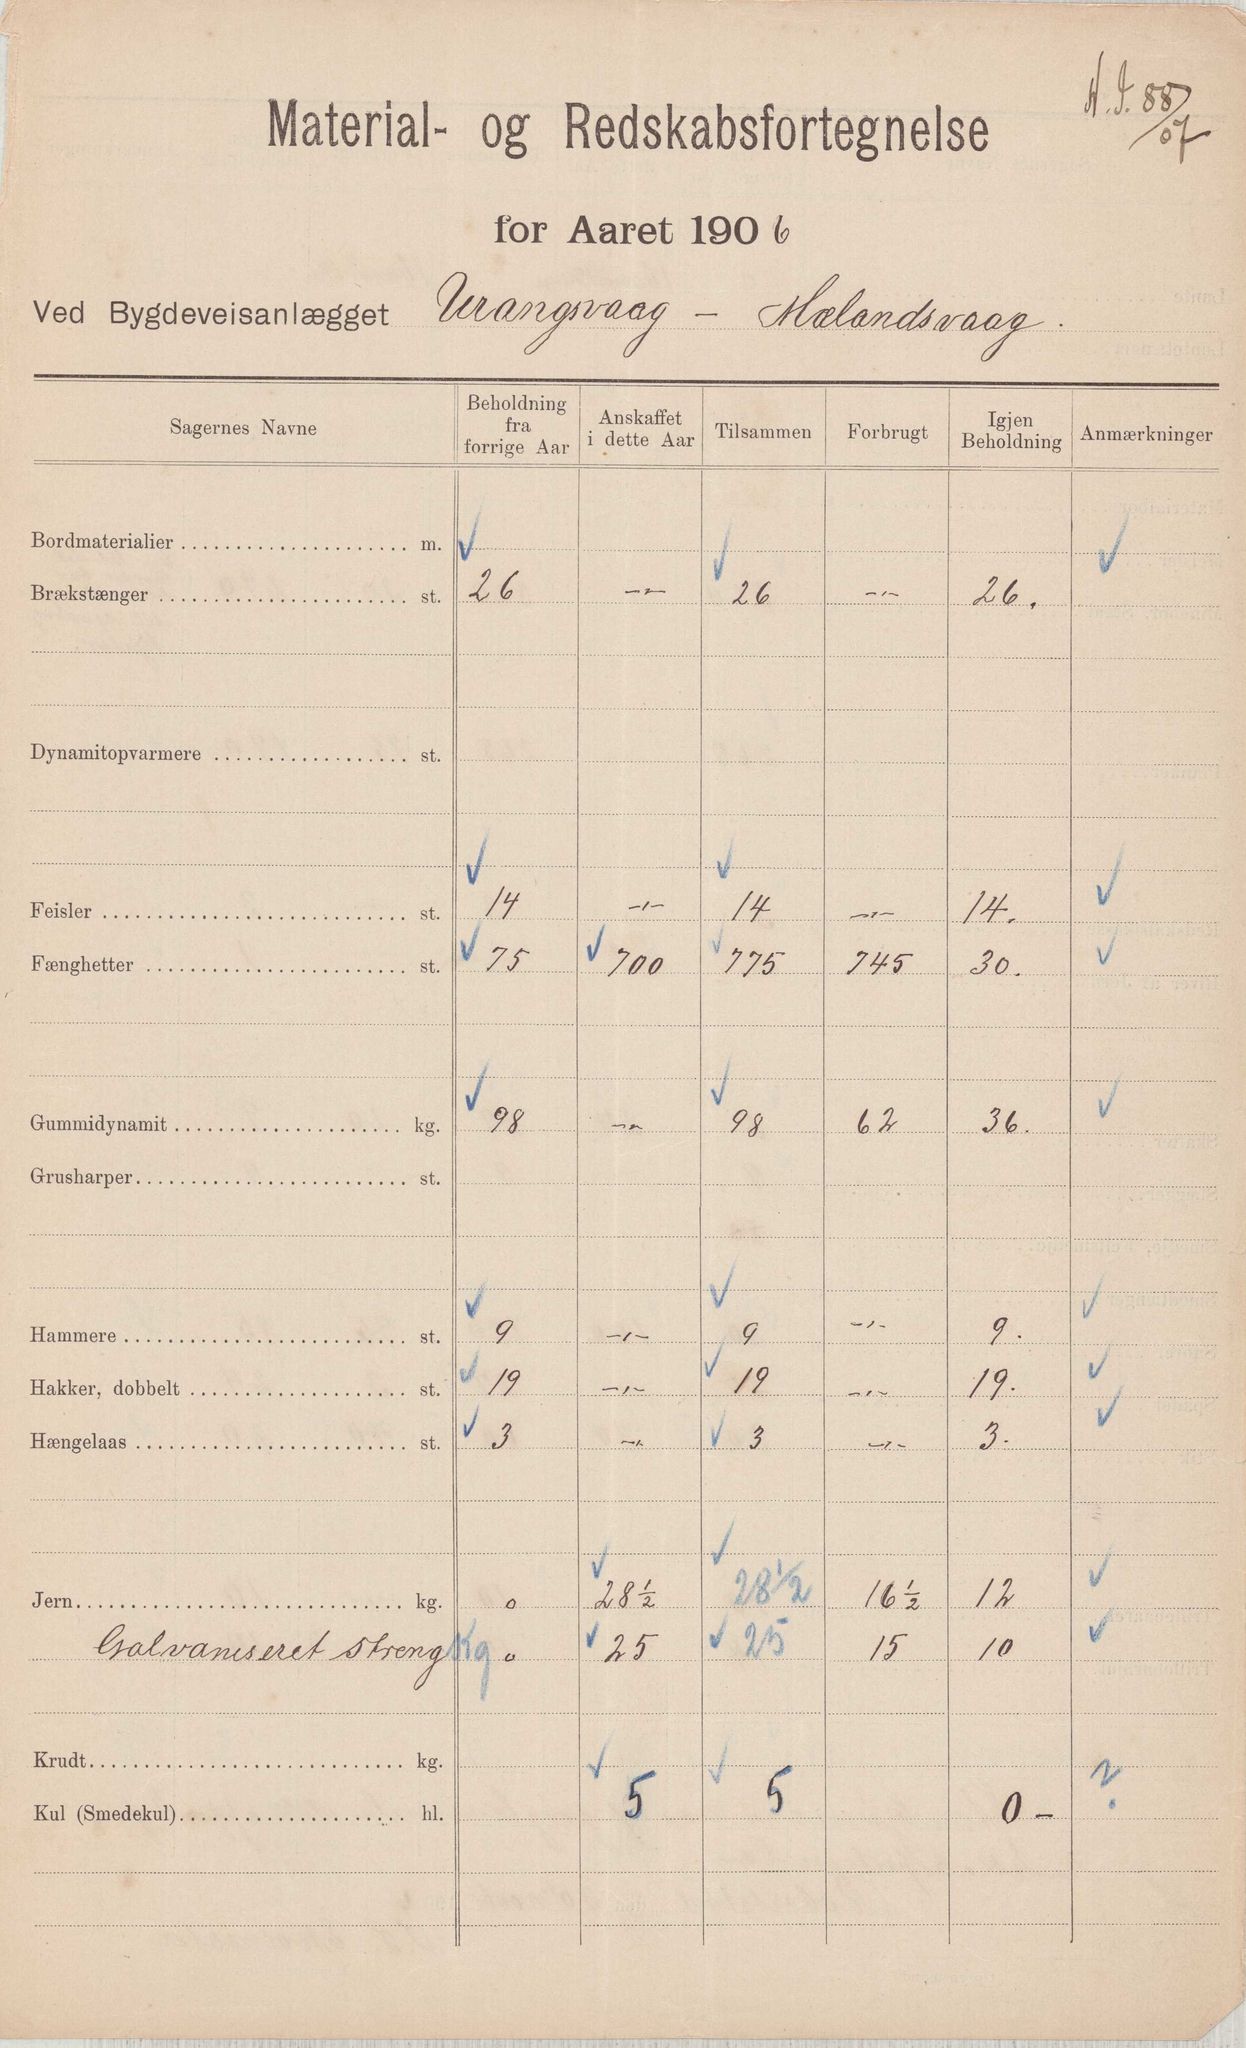 N. J. 88/07
Material- og Redskabsfortegnelse
for Aaret 1906
Ved Bygdeveisanlægget Urangsvaag – Mælandsvaag.
Sagernes Navne | Beholdning fra forrige Aar | Anskaffet i dette Aar | Tilsammen | Forbrugt | Igjen Beholdning | Anmærkninger
Bordmaterialier m. ✓ ✓ ✓
Brækstænger st. 26 -"- 26 -"- 26.
Dynamitopvarmere st.
✓ ✓
Feisler st. 14 -"- 14 -"- 14. ✓
Fænghetter st. ✓ 75 ✓ 700 ✓ 775 745 30. ✓
Gummidynamit kg. ✓ 98 -"- ✓ 98 62 36. ✓
Grusharper st.
Hammere st. ✓ 9 -"- ✓ 9 -"- 9. ✓
Hakker, dobbelt st. ✓ 19 -"- ✓ 19 -"- 19. ✓
Hængelaas st. ✓ 3 -"- ✓ 3 -"- 3. ✓
Jern kg. o ✓ 28 1/2 ✓ 28 1/2 16 1/2 12 ✓
Galvaniseret streng Kg o ✓ 25 ✓ 25 15 10 ✓
Krudt kg. ✓ ✓
Kul (Smedekul) hl. 5 5 0 – ?